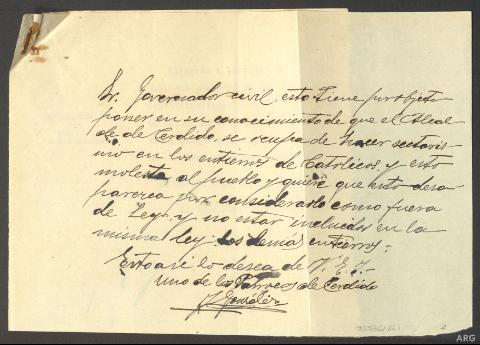 Sr. Governador civil, esto tiene por objeto
poner en su conocimiento de que el Alcal
de de Cerdido, se ocupa de hacer sectaris-
mo en los entierros de Catolicos, y esto
molesta al pueblo y quiere que esto desa-
parezca por considerarlo como fuera
de Ley, y no estar incluidos en la
misma ley los demás entierros.-
Esto asi lo desea de V.E.I.-
uno de los Parrocos de Cerdido
J. González
ARG